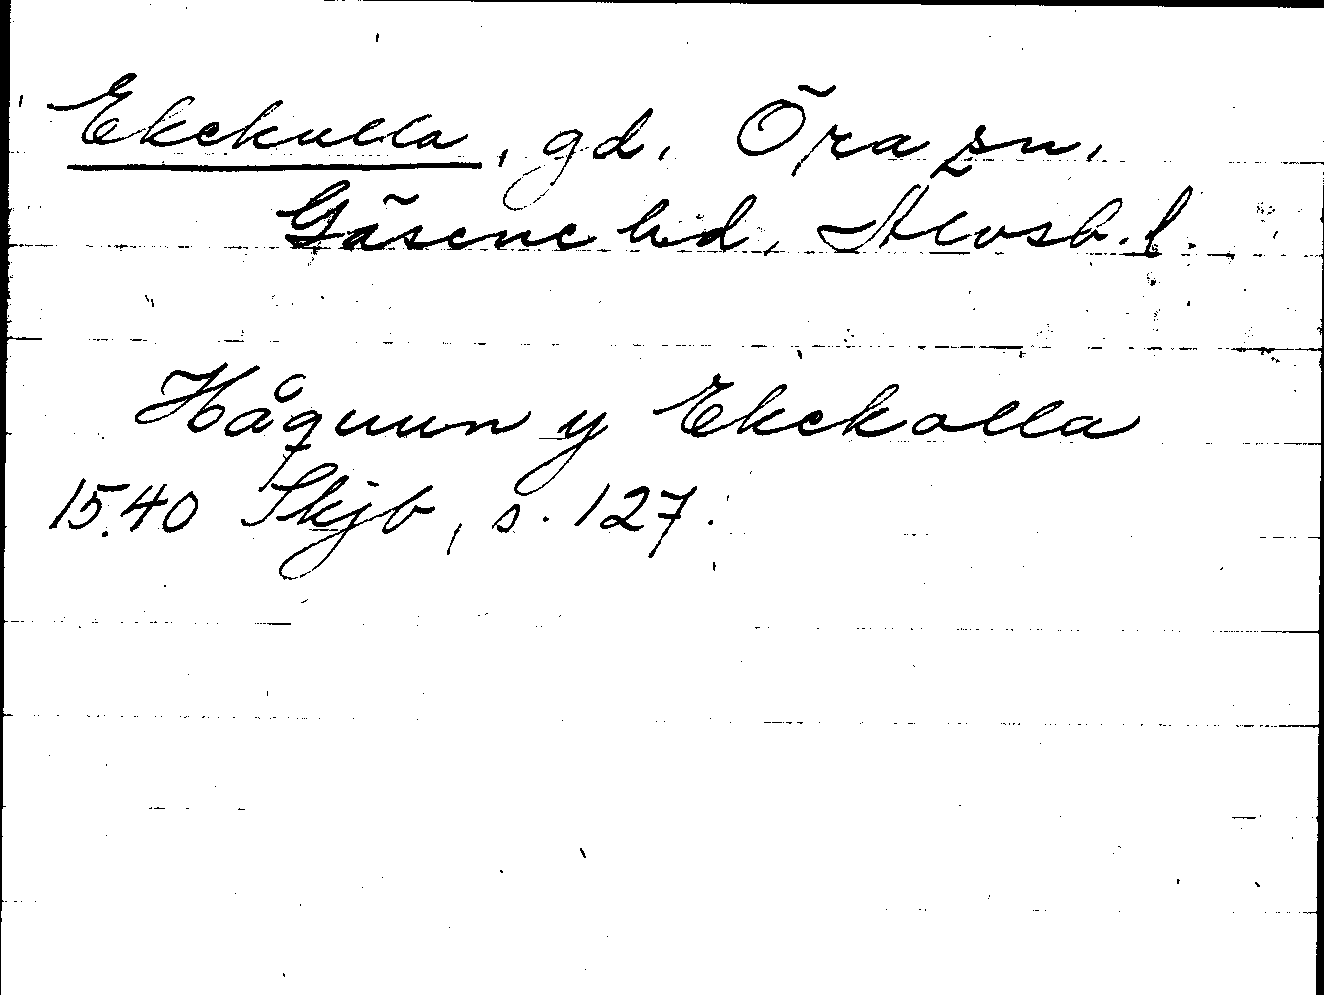 Ekekulla, gd. Öra sn.
Gäsene hd, Älvsb. l.
Håquun y Ekekolla
1540 Skjb, s. 127.